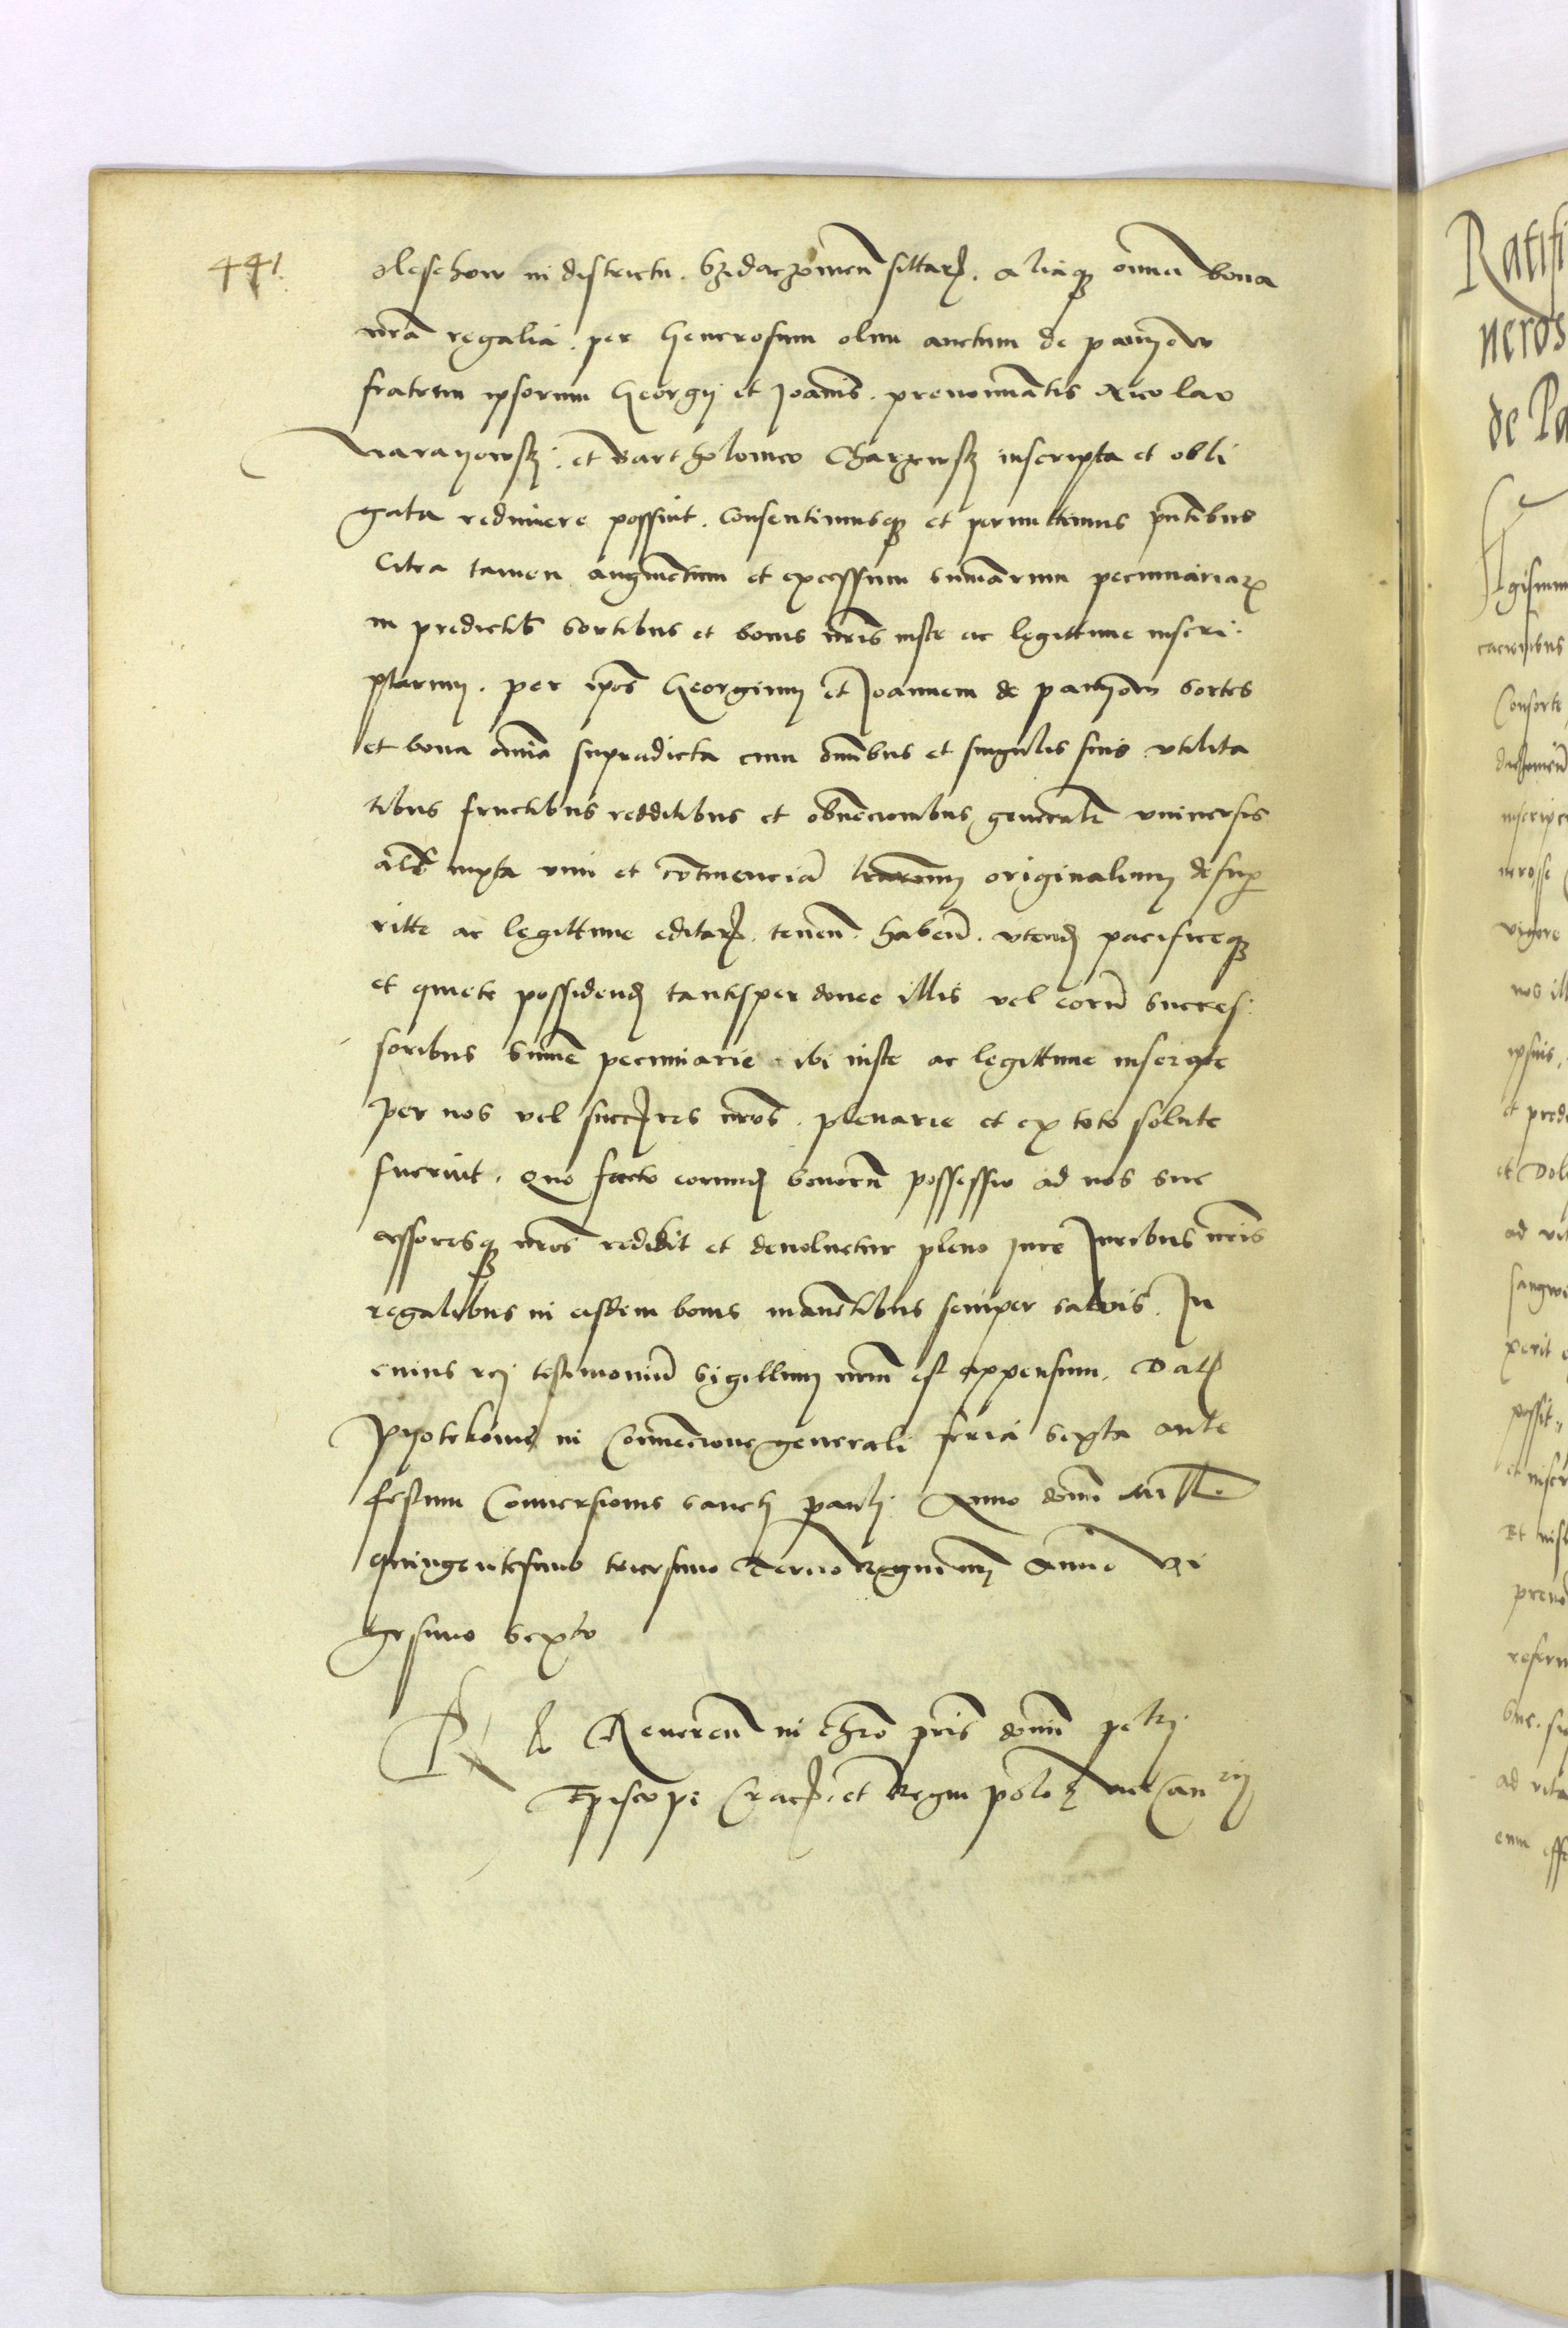 441.
oleschow in districtu. Gzidaczowien sittar. aliaq omnia bona
nra regalia. per Generosum olim anctum de paniow
fratrem ipsorum Georgij et Joanis. prenominatis Nicolao
Varanowskj. et Bartholomeo Charzewskj inscripta et obli
gata redimere possint. consentimusq et permittimus pntibus
Citra tamen augmentum et excessum sumarum pecuniariar
in predictis sortibus et bonis nris iuste ac legittime inscri.
ptarum. per ipos Georgium et Joannem de paniow sortes
et bona omnia supradicta cum omnibus et singulis suis vtilita
tibus fructibus redditibus et obuencionibus generalr vniuersis
alr iuxta vim et continenciam lrarum originalium desup
ritte ac legittime editar. tenen. haben. vtend pacificeq
et quiete possidend tantisper donec illis vel eorum succes:
soribus summe pecuniarie ibi iuste ac legittime inscripte
per nos vel succres nros. plenarie et ex toto solute
fuerint. Quo facto eorund bonorum possessio ad nos suc
cessoresq nros redibit et deuoluetur pleno jure Juribus nris
regalibus in eisdem bonis manentibus semper saluis. In
cuius rej testimonium Sigillum nrm est appensum. Dat
Pyotrkowie in Conuencione generali feria sexta ante
festum Conuersionis sancti pauli. Anno domini Mill.
quingentesimo tricesimo Tercio Regni nri Anno vi
gesimo sexto
Rlo Reueren in chro pris domini petri
Episcopi Crac. et Regni polo vicecanrij
Ratifi
neros
de Pa
gismu
Consorte
vigore
nos ill
ipsius
et pred
et Dol
possit
et inscr
ad vita
eum effe